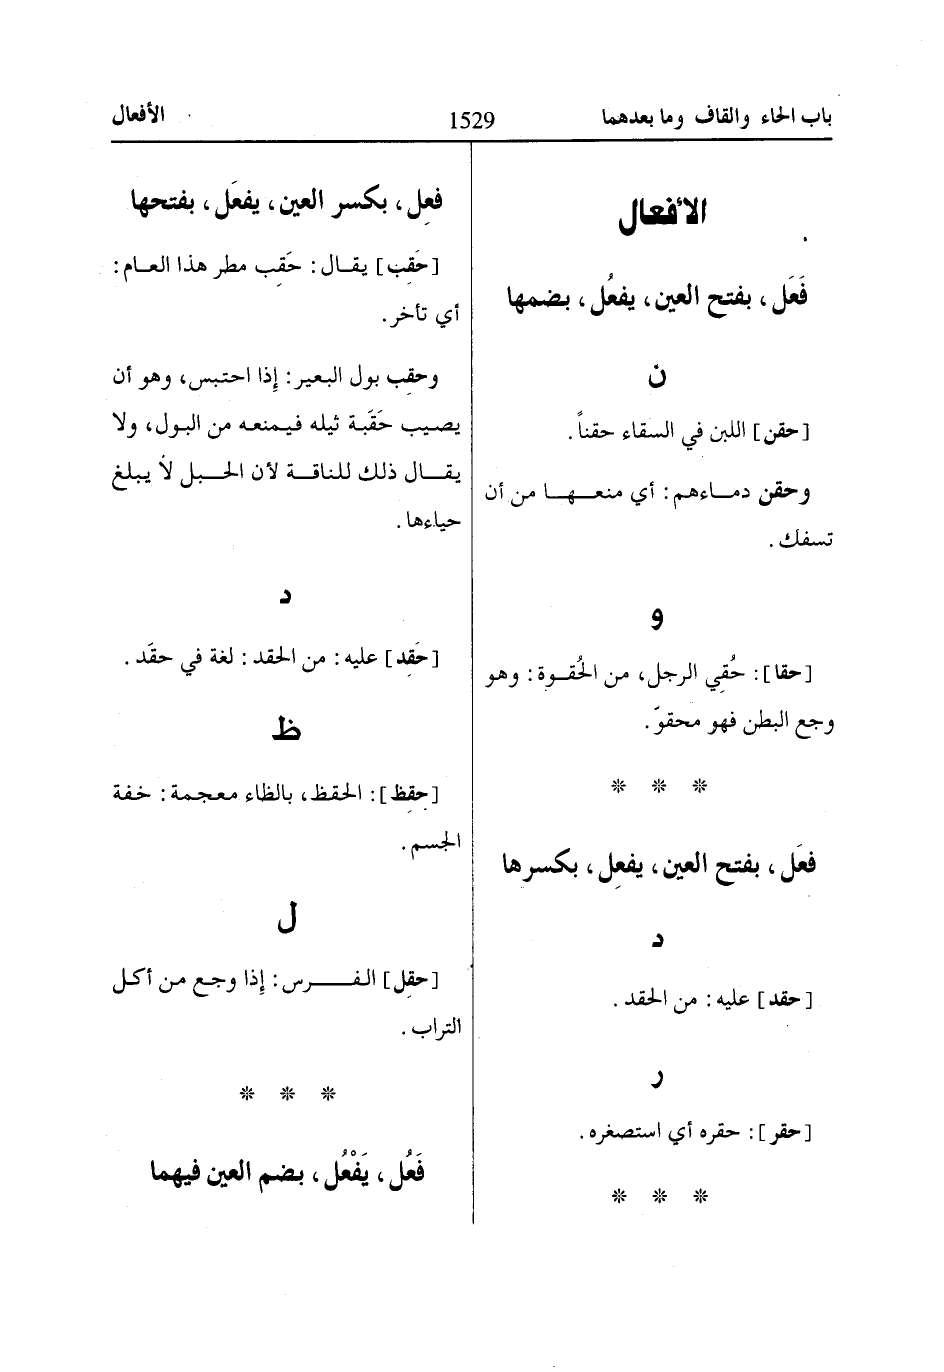 باب الحاء والقاف وما بعدهما
1529
الأفعال
الأفعال
فَعَل، بفتح العين، يفعُل، بضمها
ن
[حقن] اللبن في السقاء حقناً.
وحقن دماءهم: أي منعها من أن
تسفك.
و
[حقا]: حُقِي الرجل، من الحُقوة: وهو
وجع البطن فهو محقوّ.
* * *
فعَل، بفتح العين، يفعِل، بكسرها
د
[حقد] عليه: من الحقد.
ر
[حقر]: حقره أي استصغره.
* * *
فعِل، بكسر العين، يفعَل، بفتحها
[حَقِب] يقال: حَقِب مطر هذا العام:
أي تأخر.
وحقِب بول البعير: إذا احتبس، وهو أن
يصيب حَقَبة ثيله فيمنعه من البول، ولا
يقال ذلك للناقة لأن الحبل لا يبلغ
حياءها.
د
[حَقِد] عليه: من الحقد: لغة في حقَد.
ظ
[حقِظ]: الحقظ، بالظاء معجمة: خفة
الجسم.
ل
[حقِل] الفرس: إذا وجع من أكل
التراب.
* * *
فَعُل، يَفْعُل، بضم العين فيهما